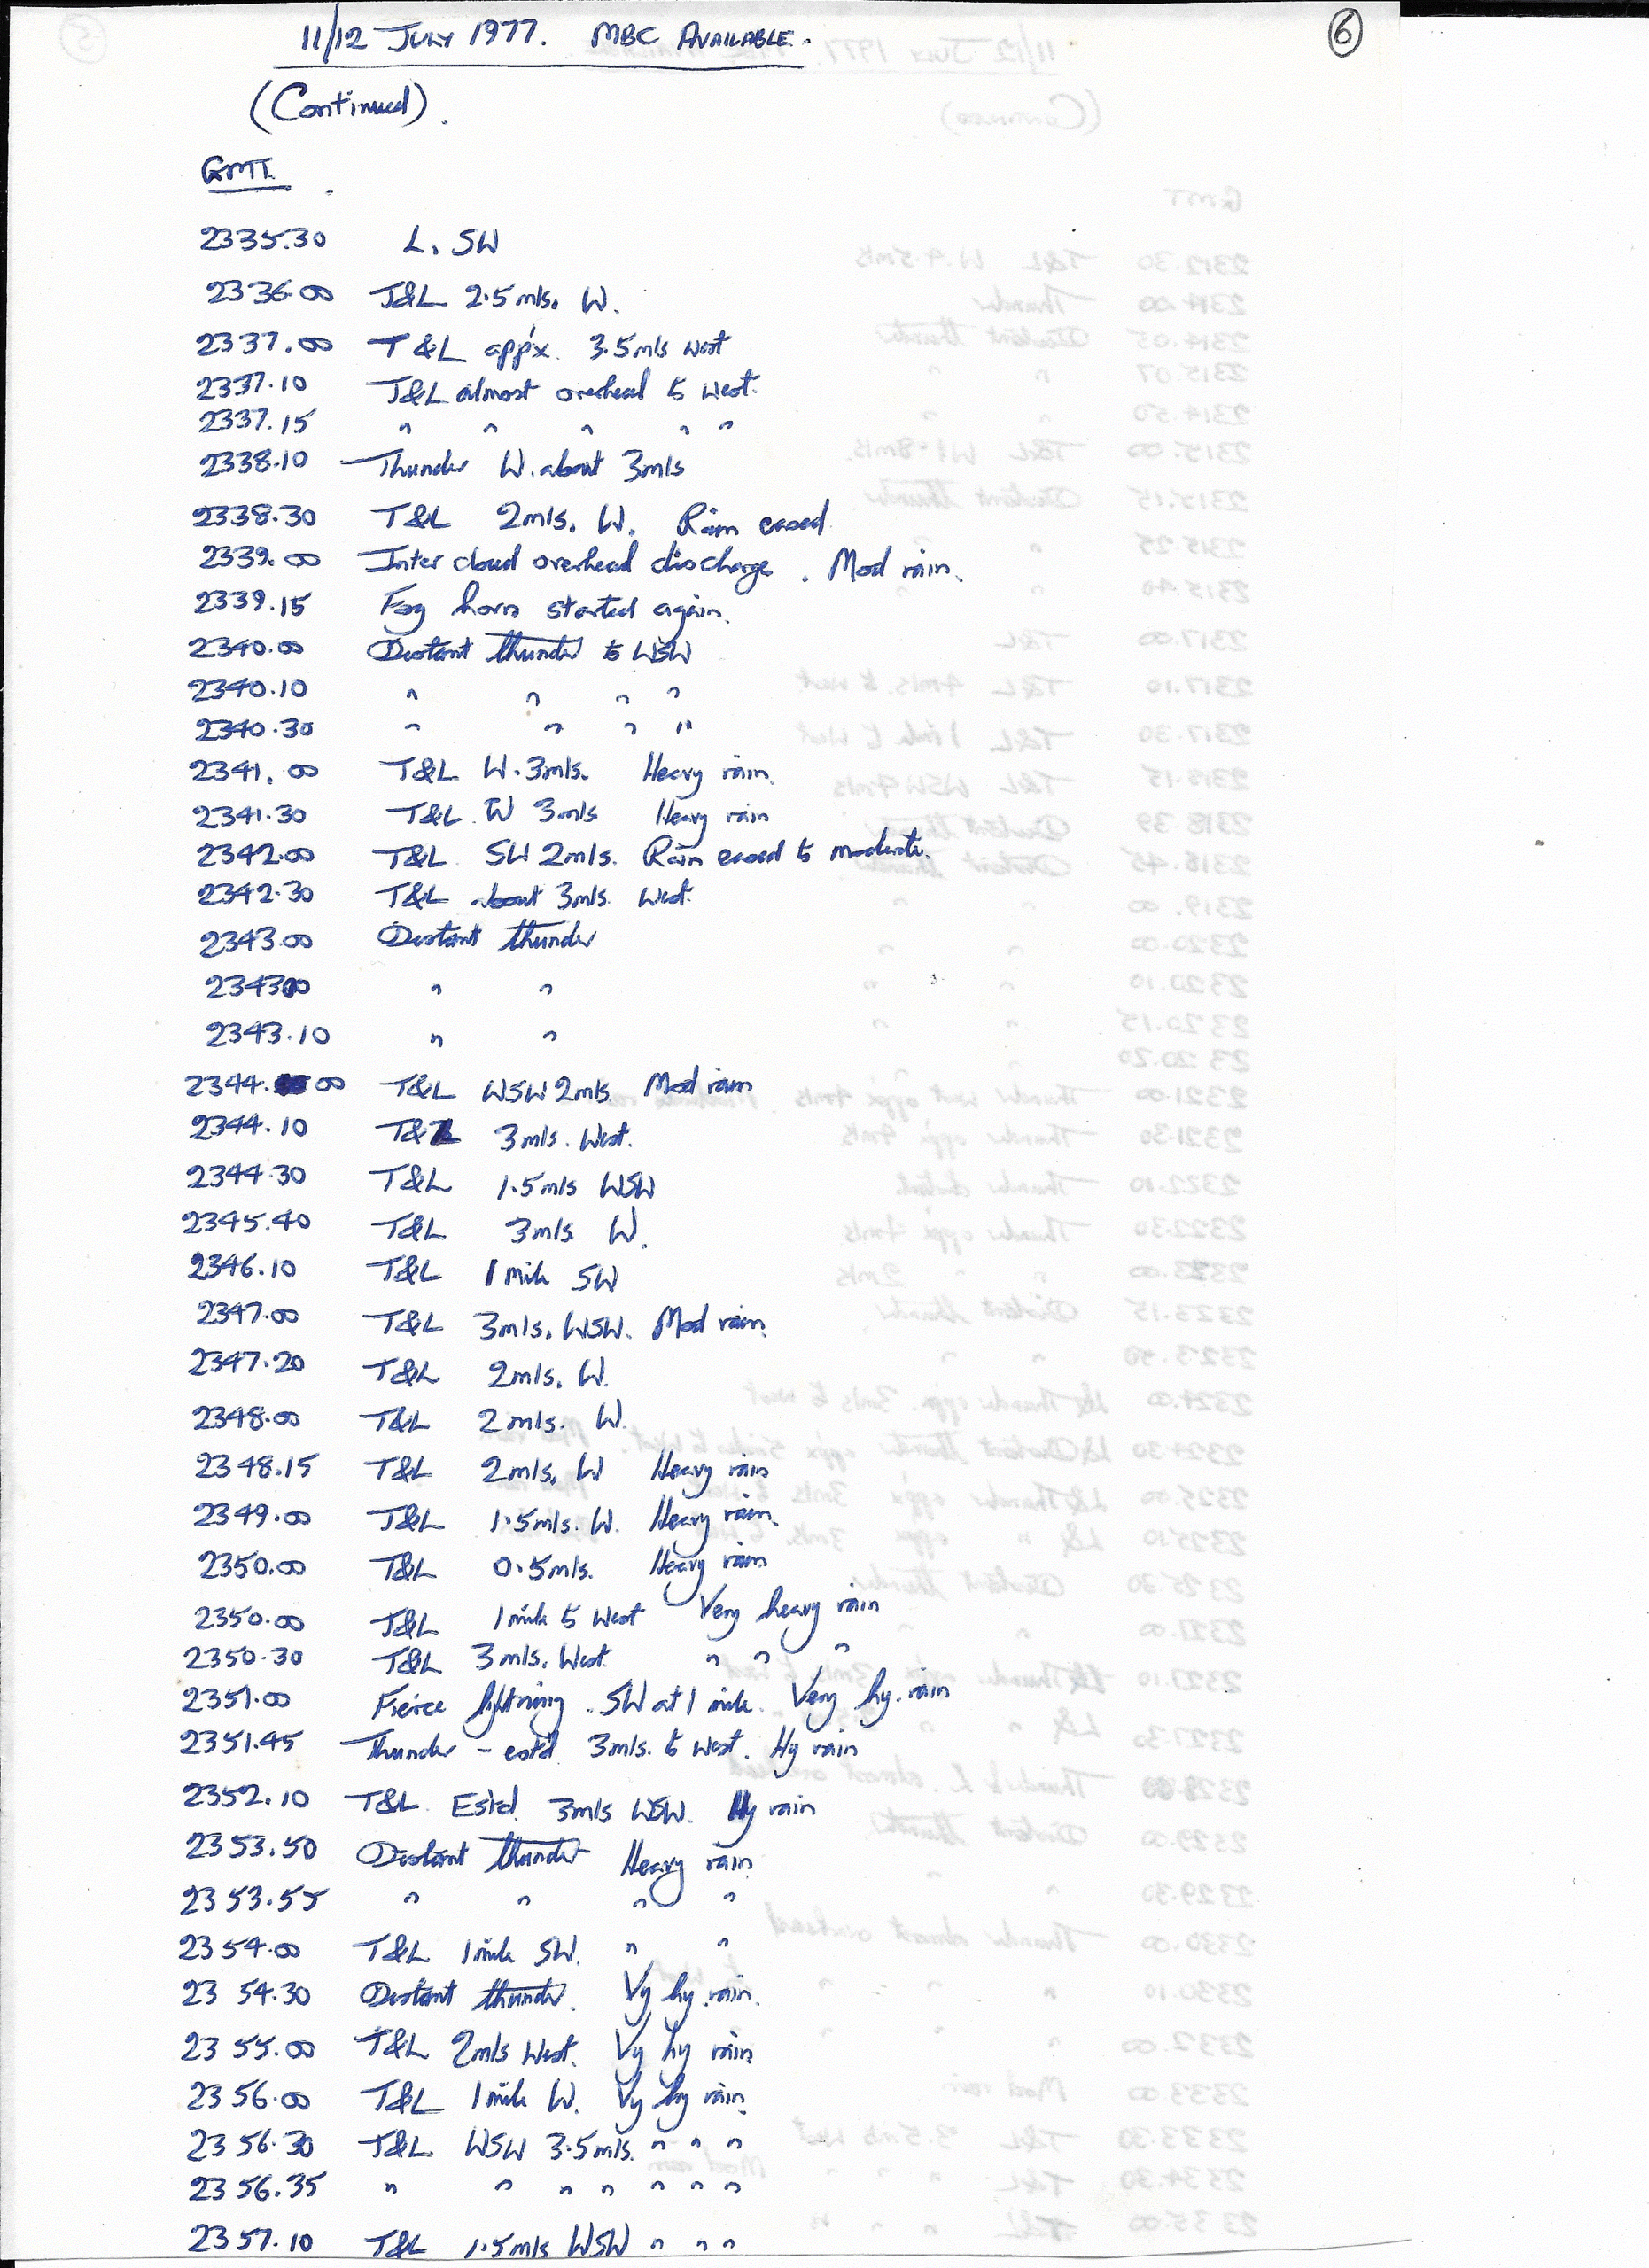 11/12 JULY 1977. MBC AVAILABLE.
6
(Continued).
GMT.
2335.30 L. SW
2336.00 T&L 2.5 mls. W.
2337.00 T&L app'x. 3.5 mls west
2337.10 T&L almost overhead to west.
2337.15 " " " " "
2338.10 Thunder W. about 3 mls
2338.30 T&L 2 mls. W. Rain eased
2339.00 Inter cloud overhead discharge. Mod rain.
2339.15 Fog horn started again.
2340.00 Distant thunder to WSW
2340.10 " " " "
2340.30 " " " "
2341.00 T&L W. 3 mls. Heavy rain.
2341.30 T&L W 3 mls Heavy rain
2342.00 T&L SW 2 mls. Rain eased to moderate.
2342.30 T&L about 3 mls. West.
2343.00 Distant thunder
234300 " "
2343.10 " "
2344. 00 T&L WSW 2 mls. Mod rain
2344.10 T&L 3 mls. West.
2344.30 T&L 1.5 mls WSW
2345.40 T&L 3 mls. W.
2346.10 T&L 1 mile SW
2347.00 T&L 3 mls. WSW. Mod rain.
2347.20 T&L 2 mls. W.
2348.00 T&L 2 mls. W.
2348.15 T&L 2 mls. W Heavy rain
2349.00 T&L 1.5 mls. W. Heavy rain.
2350.00 T&L 0.5 mls. Heavy rain
2350.00 T&L 1 mile to West Very heavy rain
2350.30 T&L 3 mls. West. " " "
2351.00 Fierce lightning. SW at 1 mile. Very hy. rain
2351.45 Thunder - est'd 3 mls. to West. Hy rain
2352.10 T&L Est'd 3 mls WSW. Hy rain
2353.50 Distant thunder Heavy rain
2353.55 " " " "
2354.00 T&L 1 mile SW. " "
2354.30 Distant thunder. Vy hy. rain.
2355.00 T&L 2 mls West. Vy hy rain
2356.00 T&L 1 mile W. Vy hy rain.
2356.30 T&L WSW 3.5 mls. " " "
2356.35 " " " " " " "
2357.10 T&L 1.5 mls WSW " " "